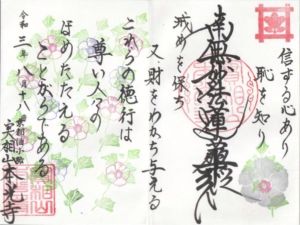 信ずる心あり
恥を知り
南無妙法蓮華経
戒めを保ち
又財をわかち与える
これらの施行は
尊い人々の
ほめたたえる
ことがらである
令和三年八月十八
実相山本光寺